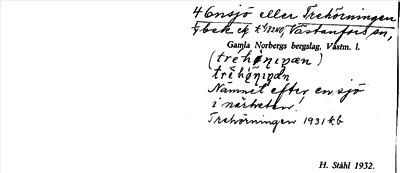 4 Ensjö eller Trehörningen
Gbek ek 49240, Västanfors sn,
Gamla Norbergs bergslag, Västm. l.
(trehö̜nıŋen)
Namnet efter en sjö
i närheten.
Trehörningen 1931 kb
H. Ståhl 1932.